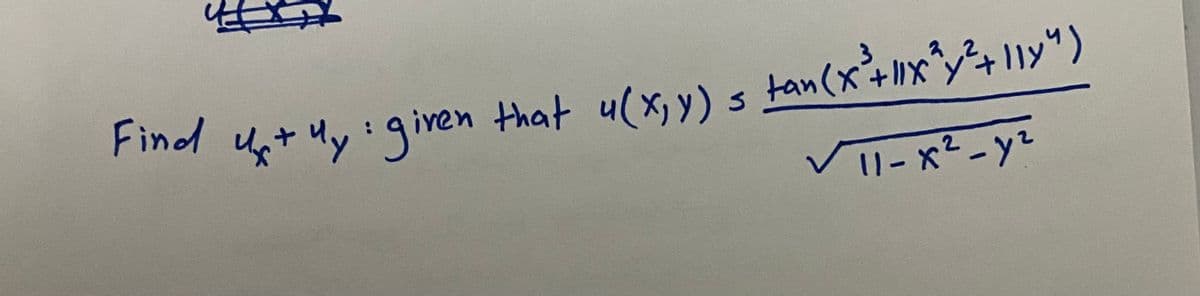 Find uₓ + u_y : given that u(x, y) = tan(x³ + 11x²y² + 11y⁴) / √(11 - x² - y²)